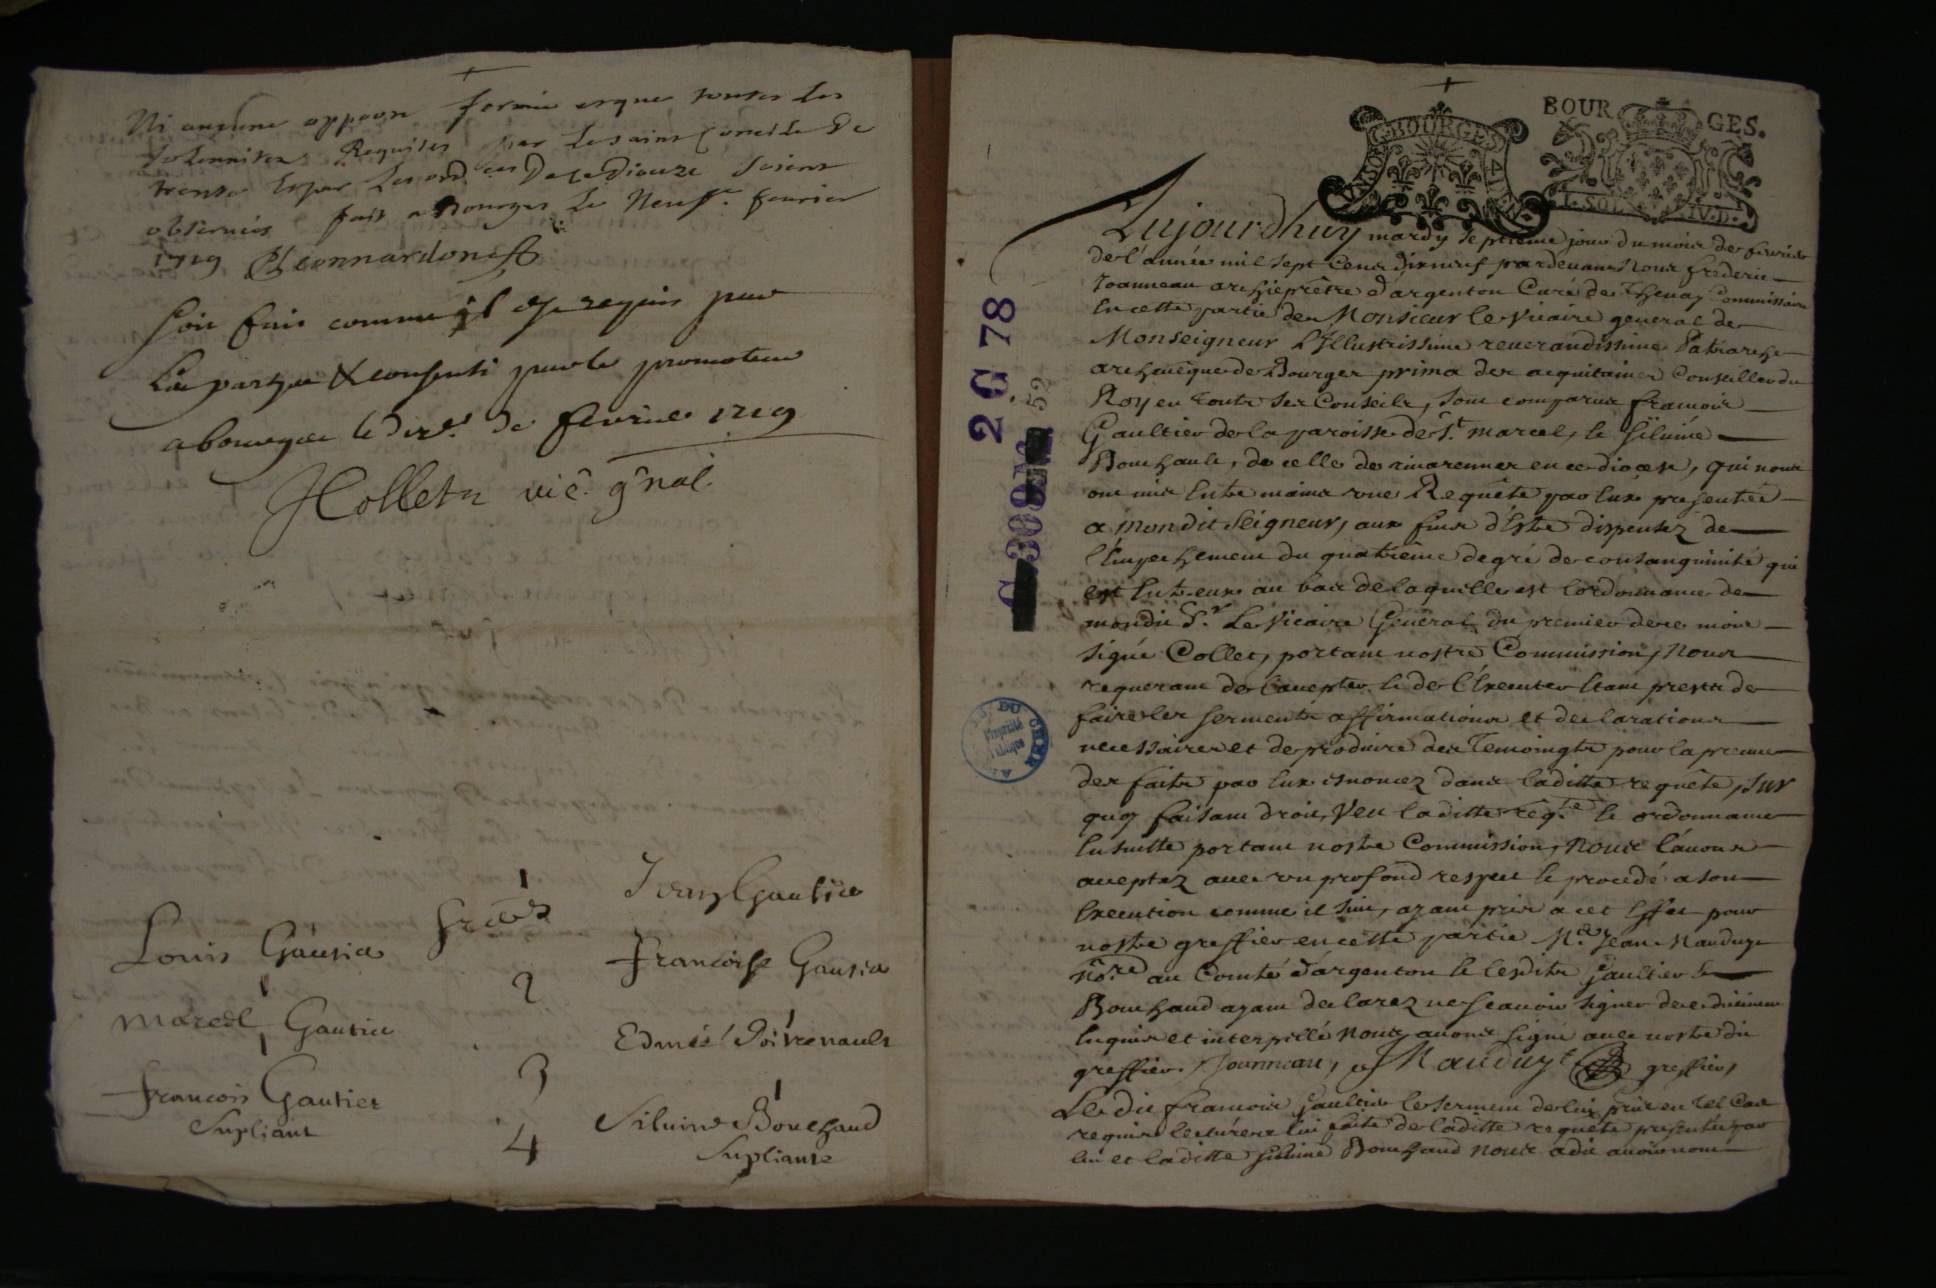 Ni aucune opposon formée et que toutes les
solennitez Requises par le saint Concile de
trente et par les ordces De ce Dioceze soient
observées fait a Bourges le Neufe. fevrier
1719
soit fait comme il est requis par
La partye & consenti par le promoteur
a bourges le dixe. de fevrier 1719
Collet vic. gnal.
Louis Gautier
1
freres
Jean Gautier
Marcel Gautier
2
Francoise Gautier
3
Edmée Poitrenault
François Gautier
Supliant
4
Silvine Bouchaud
Supliante
BOURGES
BOUR GES.
1. SOL IV. D.
2 G 78
52
DU CHER
Propriété
Publique
Aujourdhuy mardy septieme jour du mois de fevrier
de l'année mil sept cent dix neuf pardevant Nous frederic
Joanneau archiprêtre d'argenton Curé de Thenay Commissaire
en cette partie de Monsieur le Vicaire general de
Monseigneur L'Illustrissime reverandissime Patriarche
archevêque de Bourges prima des acquitaines Conseiller du
Roy en touts ses Conseils, sont comparus francois
Gaultier de la paroisse de St. marcel, et silvine
Bouchault, de celle de en ce diocese, qui nous
ont mis entre mains une Requête par eux presentée
a mondit Seigneur, aux fins d'estre dispensez de
l'Empechement du quatrième degré de consanguinité qui
est entr eux au bas de laquelle est l'ordonnance de
mondit Sr. Le Vicaire General du premier de ce mois
signé Collet, portant nostre Commission, Nous
requerant de l'accepter et de l'Executer Etant prests de
faire les serments affirmations et declarations
necessaires et de produire des Temoingts pour la preuve
des faits par eux enoncez dans laditte requête, sur
quoy faisant droit, Veu laditte reqte. et ordonnance
Ensuitte portant nostre Commission, Nous l'avons
acceptez avec un profond respect et procedé a son
Execution comme il suit, ayant pris a cet Effet pour
nostre greffier en cette partie Me. Jean Manduyt
Nore au Comté d'argenton et lesdits Gaultier et
Bouchaud ayant declarez ne scavoir signer de ce duement
Enquis et interpellé Nous avons signé avec nostre dit
greffier. Joanneau, Manduyt greffier,
Ledit francois Gaultier le serment de lui pris en tel Cas
requis lecture a lui faite de laditte requête presentée par
lui et laditte silvine Bouchaud Nous a dit avoir nom